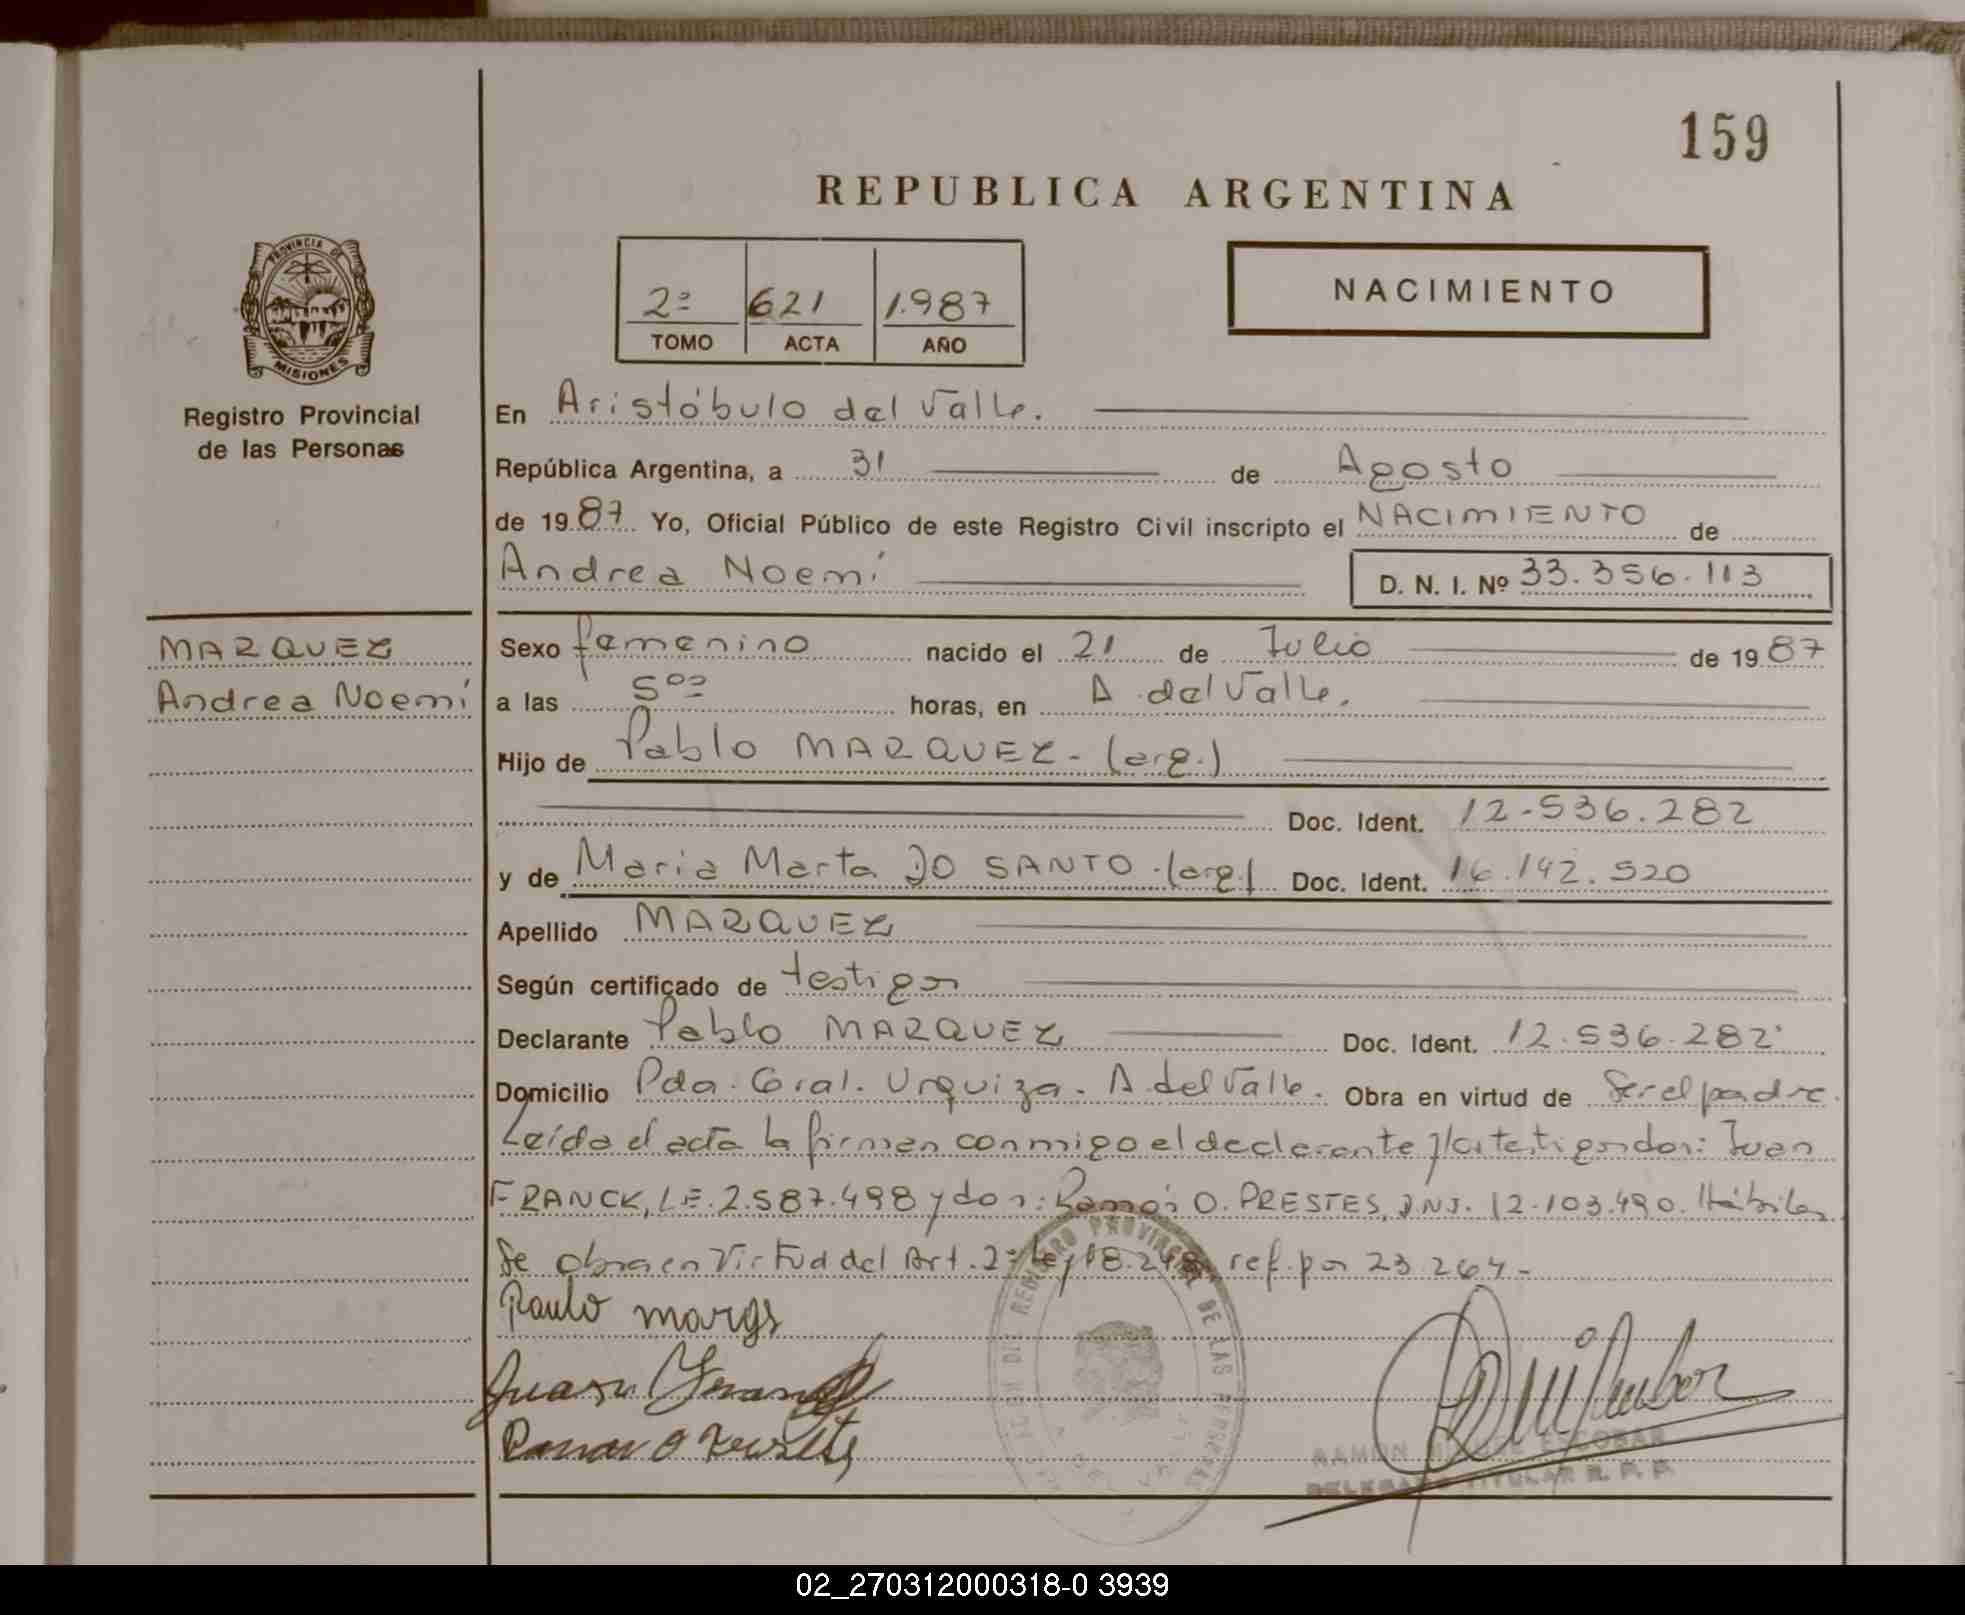 159
REPUBLICA ARGENTINA
PROVINCIA DE
MISIONES
2º 621 1.987
TOMO ACTA AÑO
NACIMIENTO
Registro Provincial
de las Personas
En Aristóbulo del Valle.
República Argentina, a 31 de Agosto
de 1987 Yo, Oficial Público de este Registro Civil inscripto el NACIMIENTO de
Andrea Noemí D. N. I. Nº 33.356.113
MARQUEZ
Andrea Noemí
Sexo femenino nacido el 21 de Julio de 1987
a las 5⁰⁰ horas, en A. del Valle.
Hijo de Pablo MARQUEZ - (arg.)
Doc. Ident. 12.536.282
y de Maria Marta DO SANTO - (arg) Doc. Ident. 16.142.520
Apellido MARQUEZ
Según certificado de testigos
Declarante Pablo MARQUEZ Doc. Ident. 12.536.282
Domicilio Pda. Gral. Urquiza. A. del Valle. Obra en virtud de Ser el padre.
Leída el acta la firman conmigo el declarante y los testigos don: Juan
FRANCK, L.E. 2.587.498 y don: Ramón O. PRESTES, D.N.I. 12.103.490. Hábiles
Se obra en Virtud del Art. 2º Ley 18.248 ref. por 23.264 -
Paulo margs
Juan
Ramon O
REGISTRO PROVINCIAL DE LAS PERSONAS
RAMON ESCOBAR
DELEGADO TITULAR R. P. P.
02_270312000318-0 3939